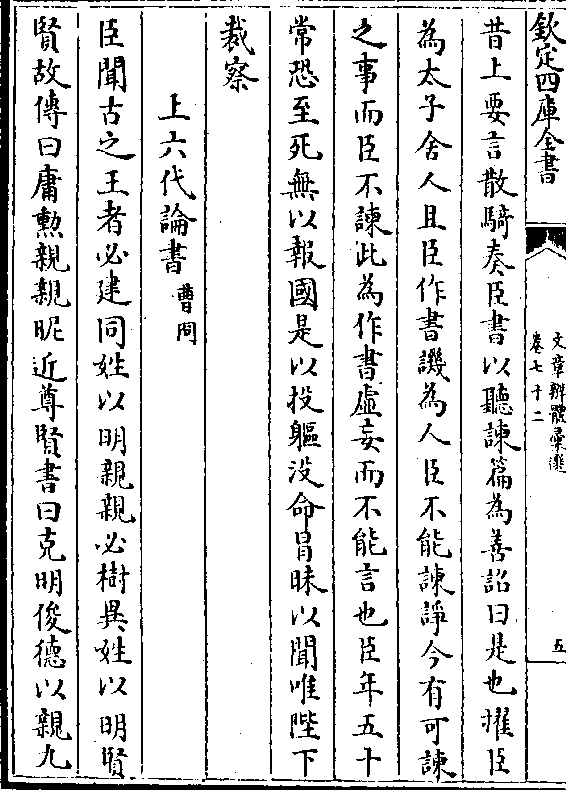 欽定四庫全書
文章辨體彙選
卷七十二
五
昔上要言散騎奏臣書以聽諫篇為善詔曰是也擢臣
為太子舍人且臣作書譏為人臣不能諫諍今有可諫
之事而臣不諫此為作書虛妄而不能言也臣年五十
常恐至死無以報國是以投軀没命冒昧以聞唯陛下
裁察
上六代論書 曹冏
臣聞古之王者必建同姓以明親親必樹異姓以明賢
賢故傳曰庸勲親親昵近尊賢書曰克明俊德以親九